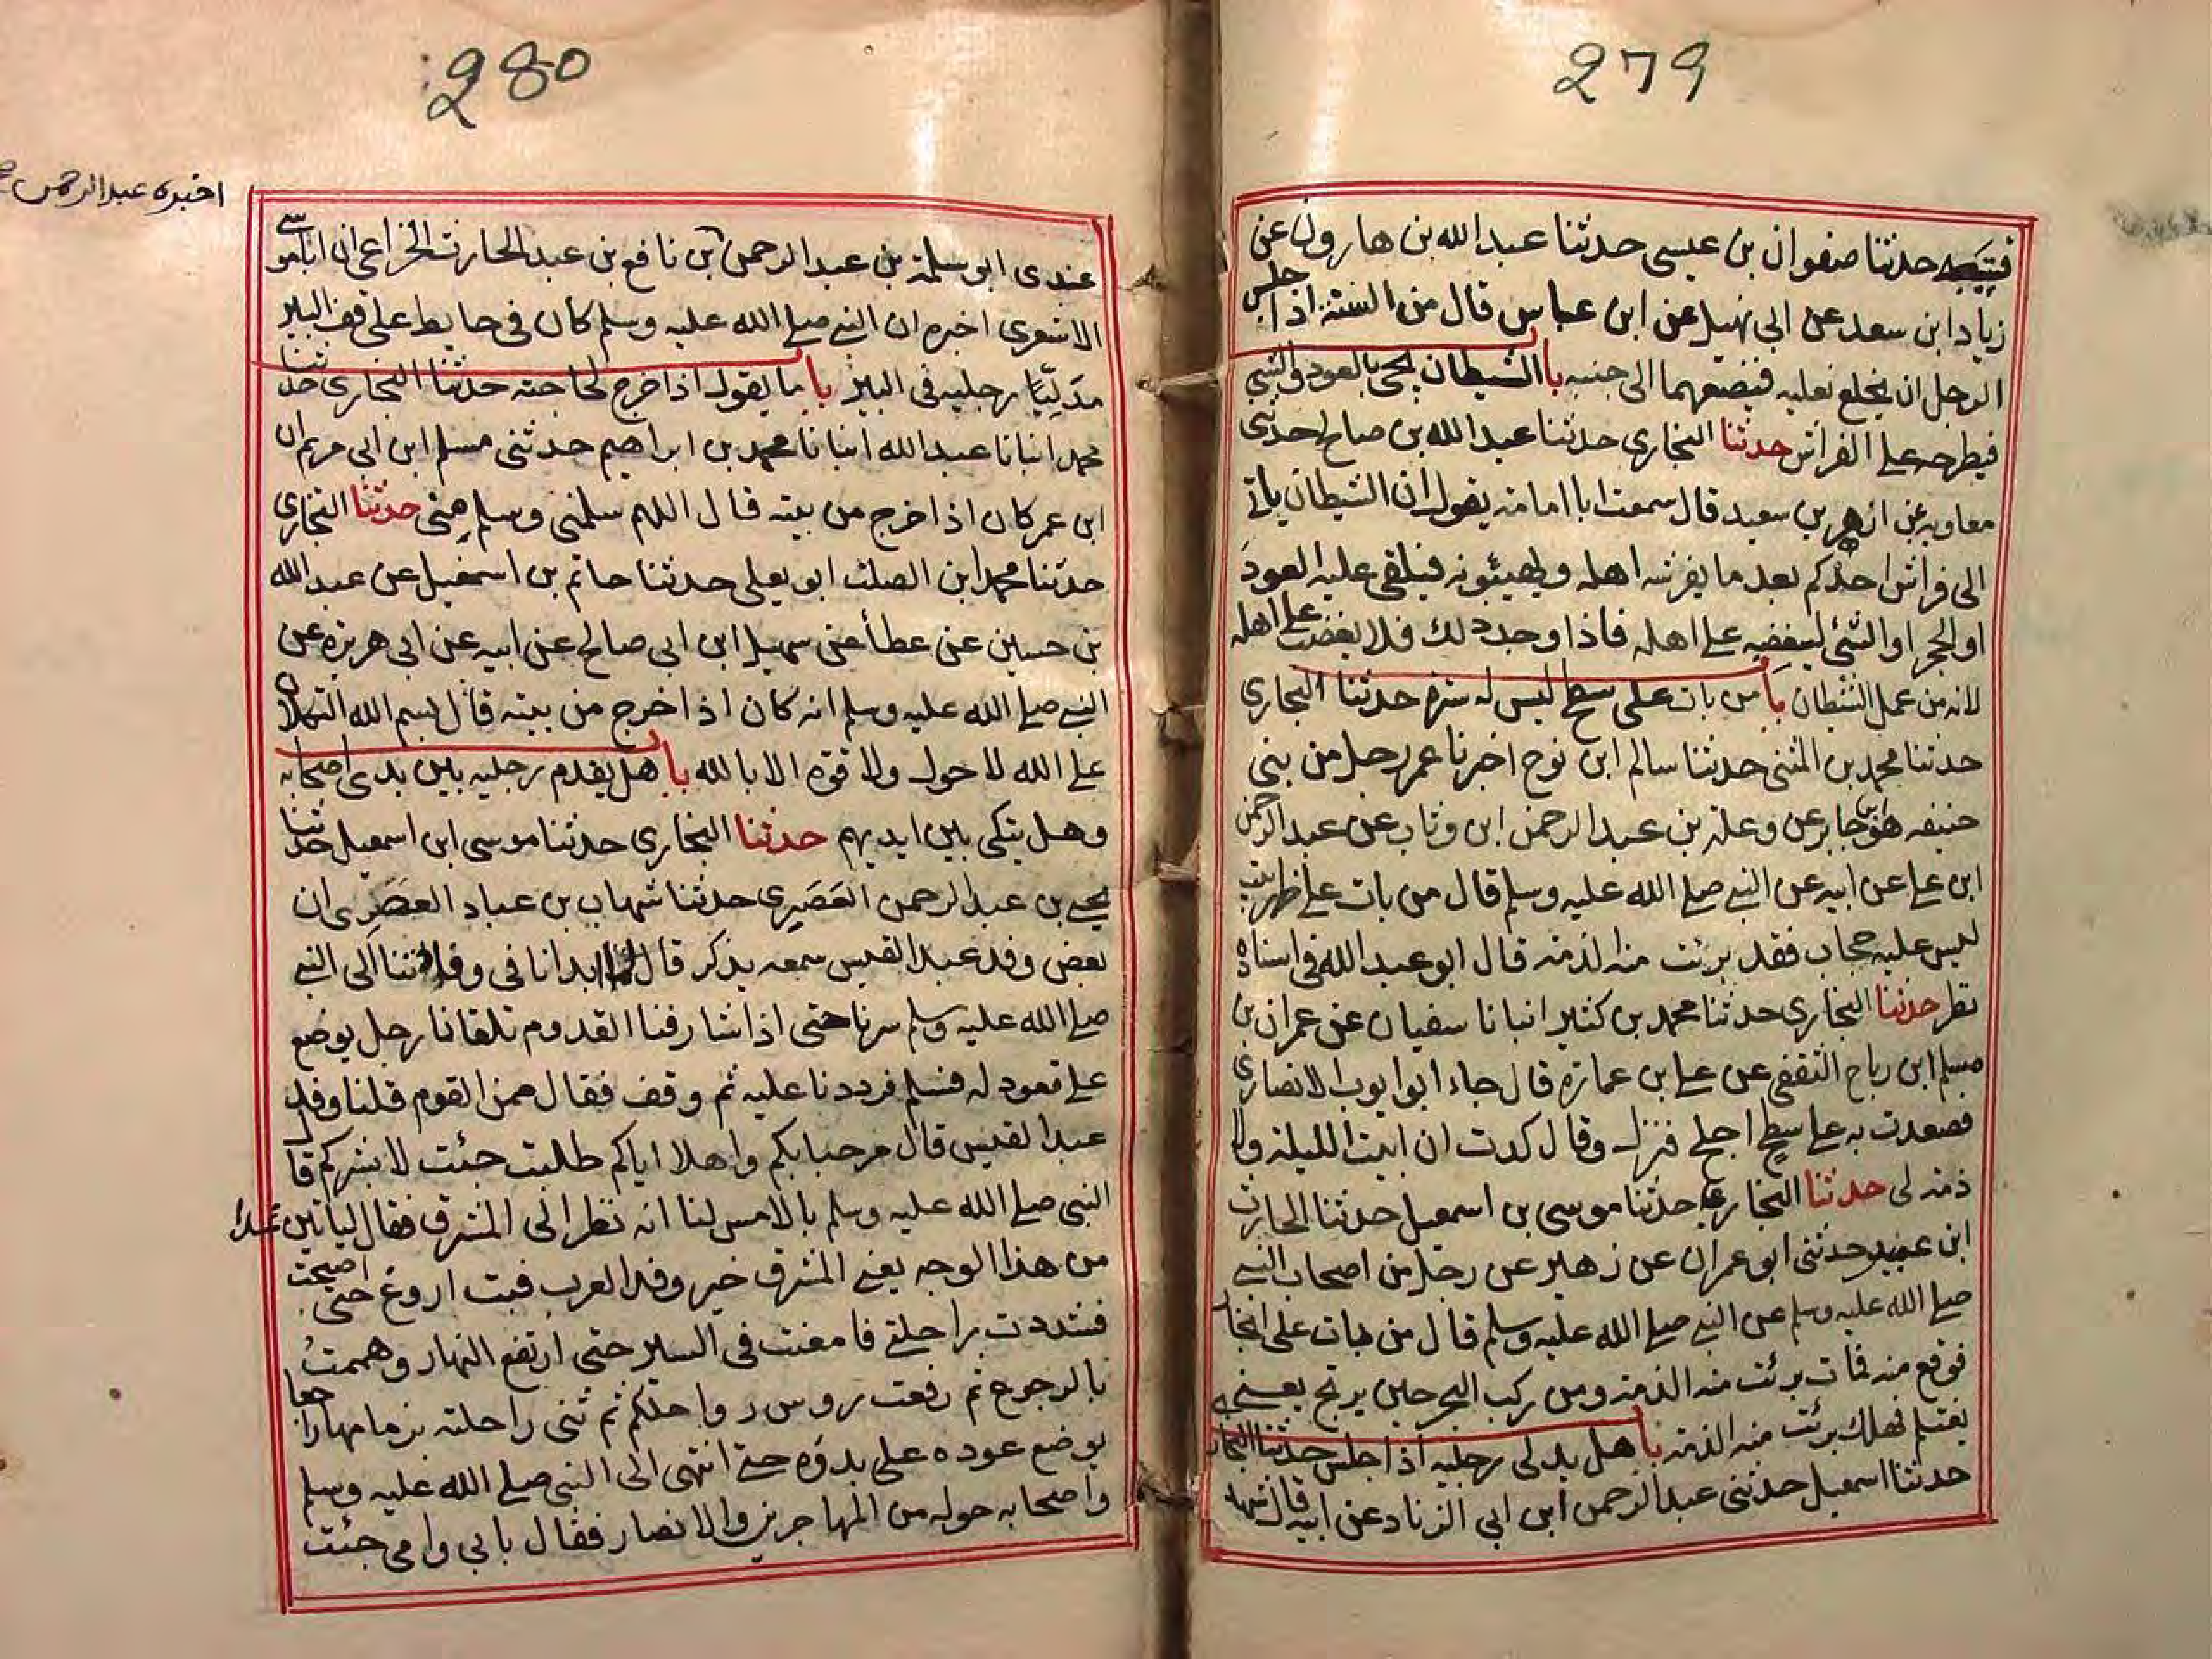 279
قتيبه حدثنا صفوان بن عيسى حدثنا عبد الله بن هارون عن
زياد ابن سعد عن ابى نهيك عن ابن عباس قال من السنة اذا جلس
الرجل ان يخلع نعليه فيضعهما الى جنبه با الشيطان يجئ بالعود والشئ
فيطرحه على الفراش حدثنا البخارى حدثنا عبد الله بن صالح حدثنى
معاويه عن ازهر بن سعيد قال سمعت ابا امامة يقول ان الشيطان ياتے
الى فراش احدكم بعد ما يفرشه اهله ويهيئونه فيلقى عليه العود
او الحجر او الشئ ليغضبه على اهله فاذا وجد ذلك فلا يغضب على اهله
لانه من عمل الشيطان با من بات على سطح ليس له سترة حدثنا البخارى
حدثنا محمد بن المثنى حدثنا سالم ابن نوح اخبرنا عمر رجل من بنى
حنيفه هو بن جابر عن وعلة بن عبد الرحمن ابن وثاب عن عبد الرحمن
ابن على عن ابيه عن النبے صلے الله عليه وسلم قال من بات على ظهر بيت
ليس عليه حجاب فقد برئت منه الذمة قال ابو عبد الله فى اسناده
نظر حدثنا البخارى حدثنا محمد بن كثير انبانا سفيان عن عمران بن
مسلم ابن رباح الثقفى عن على بن عمارة قال جاء ابو ايوب الانصارى
فصعدت به على سطح اجلح فنزل وقال كدت ان ابيت الليلة ولا
ذمة لى حدثنا البخارى حدثنا موسى بن اسمعيل حدثنا الحارث
ابن عبيد حدثنى ابو عمران عن زهير عن رجل من اصحاب النبے
صلے الله عليه وسلم عن النبے صلے الله عليه وسلم قال من بات على انجار
فوقع منه فمات برئت منه الذمة ومن ركب البحر حين يرتج يعنى
يغتلم فهلك برئت منه الذمة با هل يدلى رجليه اذا جلس حدثنا البخار
حدثنا اسمعيل حدثنى عبد الرحمن ابن ابى الزناد عن ابيه قال شهد
280
اخبره عبد الرحمن
عندى ابو سلمة بن عبد الرحمن بن نافع بن عبد الحارث الخزاعى ان ابا موسے
الاشعرى اخبره ان النبے صلے الله عليه وسلم كان فى حايط على قف البير
مدليا رجليه فى البير با ما يقول اذا خرج لحاجته حدثنا البخارى حدثنا
محمد انبانا عبد الله انبانا محمد بن ابراهيم حدثنى مسلم ابن ابى مريم ان
ابن عمر كان اذا خرج من بيته قال اللهم سلمنى وسلم منى حدثنا البخارى
حدثنا محمد ابن الصلت ابو يعلى حدثنا حاتم بن اسمعيل عن عبد الله
بن حسين عن عطأ عن سهيل ابن ابى صالح عن ابيه عن ابى هريرة عن
النبے صلے الله عليه وسلم انه كان اذا خرج من بيته قال بسم الله التكلان
على الله لا حول ولا قوة الا بالله با هل يقدم رجليه بين يدى اصحابه
وهل يتكى بين ايديهم حدثنا البخارى حدثنا موسى ابن اسمعيل حدثنا
يحيے بن عبد الرحمن العَصَرِى حدثنا شهاب بن عباد العصرى ان
بعض وفد عبد القيس سمعه يذكر قال لما ابدانا فى وفادتنا الى النبے
صلے الله عليه وسلم سرنا حتى اذا شارفنا القدوم تلقانا رجل يوضع
على قعود له فسلم فرددنا عليه ثم وقف فقال ممن القوم قلنا وفد
عبد القيس قال مرحبا بكم واهلا اياكم طلبت جئت لابشركم قال
النبى صلے الله عليه وسلم بالامس لنا انه نظر الى المشرق فقال لياتين غدا
من هذا الوجه يعنے المشرق خير وفد العرب فبت اروغ حتى اصبحت
فشددت براحلتے فامعنت فى السير حتى ارتفع النهار وهممت
بالرجوع ثم رفعت روس رواحلكم ثم ثنى راحلته بزمامها راجعا
يوضع عوده على بدؤه حتے انتهى الى النبى صلے الله عليه وسلم
واصحابه حوله من المهاجرين والانصار فقال بابى وامى جئت